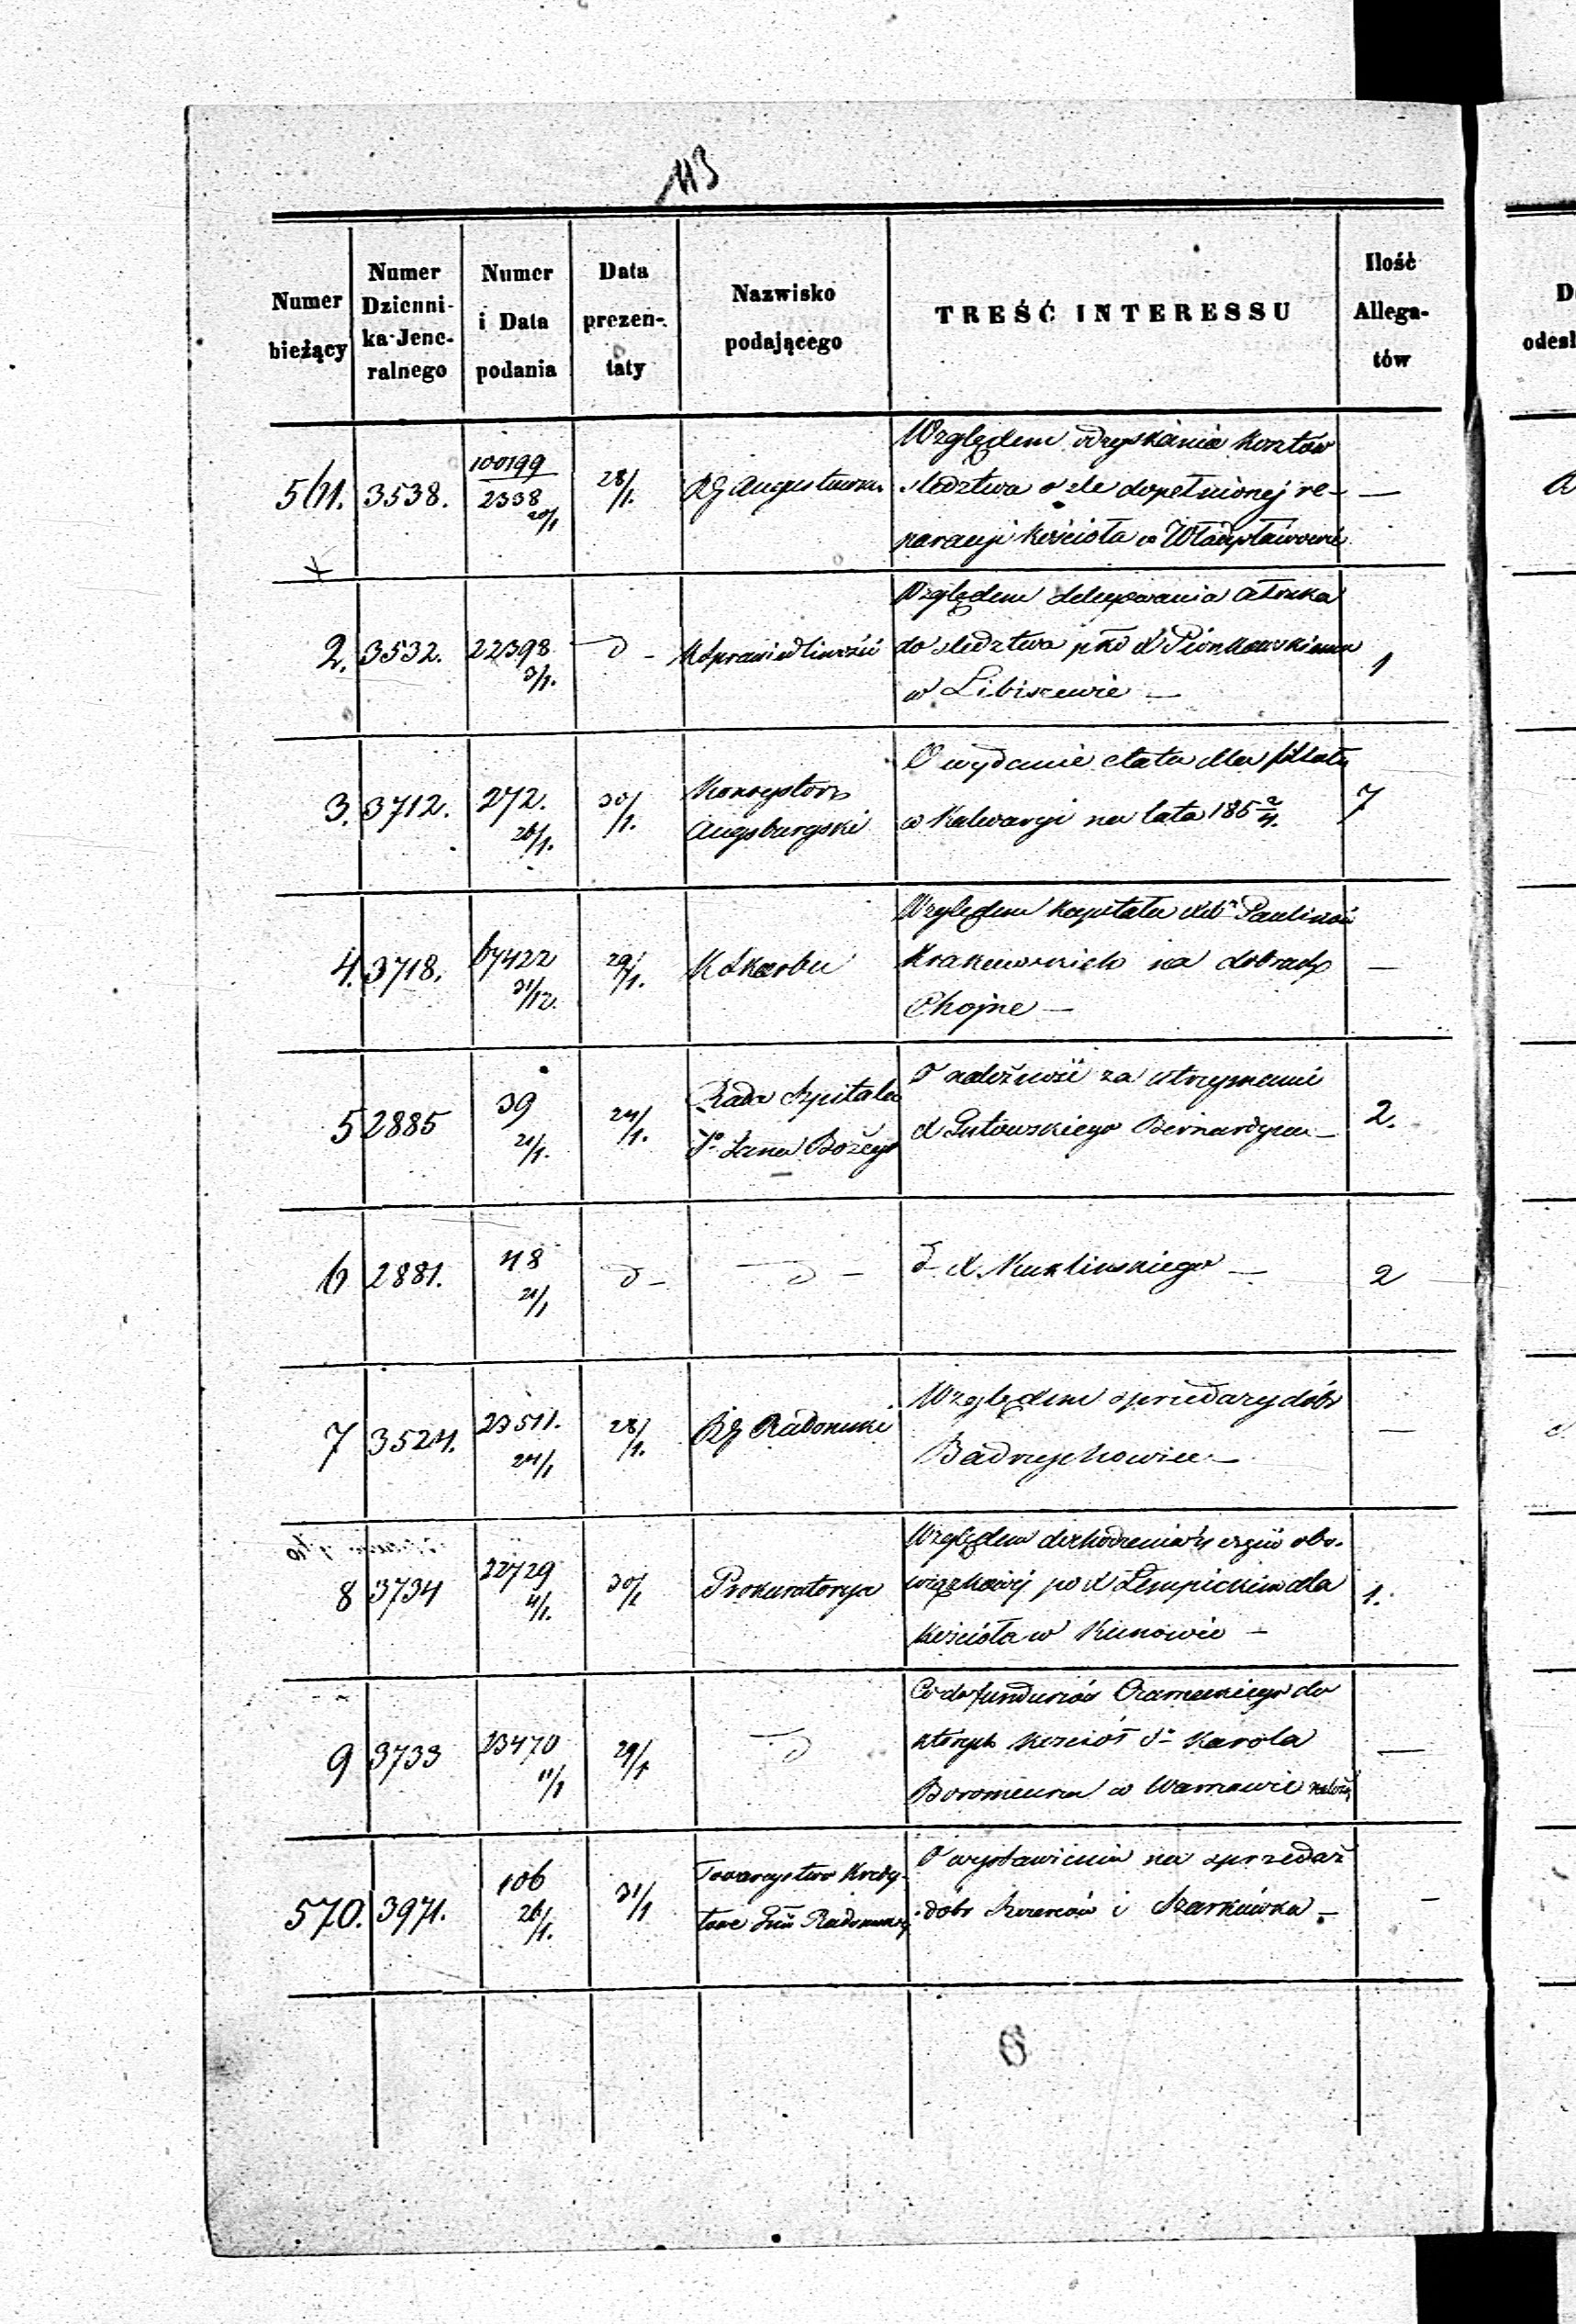 113
Numer bieżący | Numer Dzienni-ka-Jene-ralnego | Numer i Data podania | Data prezen-taty | Nazwisko podającego | TREŚĆ INTERESSU | Ilość Allega-tów
561. 3538. 100199 2338 20/1 28/1. RG Augustowski
Względem odzyskania kosztów
śledztwa o źle dopełnionej re- —
paracyi kościoła w Władysławowie
2. 3532. 22398 3/1. d - KSprawiedliwości
Względem delegowania członka
do śledztwa pko X Pionkowskiemu 1
w Libiszewie —
3. 3712. 272. 26/1. 30/1. Konsystorz Augsburgski
O wydanie etatu dla filiału
w Kalwaryi na lata 185 2/4. 7
4. 3718. 67422 31/12. 29/1. KSkarbu
Względem kapitału Paulinów
Krakowskich na dobrach —
Chojne —
5 2885 39 21/1. 24/1. Rada Szpitala
Sgo Jana Bożego
O należność za utrzymanie
X Gutowskiego Bernardyna — 2.
6 2881. 48 21/1 d - d -
d X. Kuklińskiego — 2
7 3524. 23511. 24/1 28/1. RG Radomski
Względem sprzedaży dóbr —
Badrzychowice —
8 3734 22729 4/1. 30/1 Prokuratorya
Względem dochodzenia obo-
wiązkowej po X Łempickim dla 1.
kościoła w Kunowie —
9 3733 23470 11/1 29/1 d
Co do funduszów do
których kościoł Sgo Karola —
Boromeusza w Warszawie należy
570. 3971. 106 26/1. 31/1 Towarzystwo Kredy-
towe Gub Radomskiej
O wystawieniu na sprzedaż
dóbr i Szarkówka — —